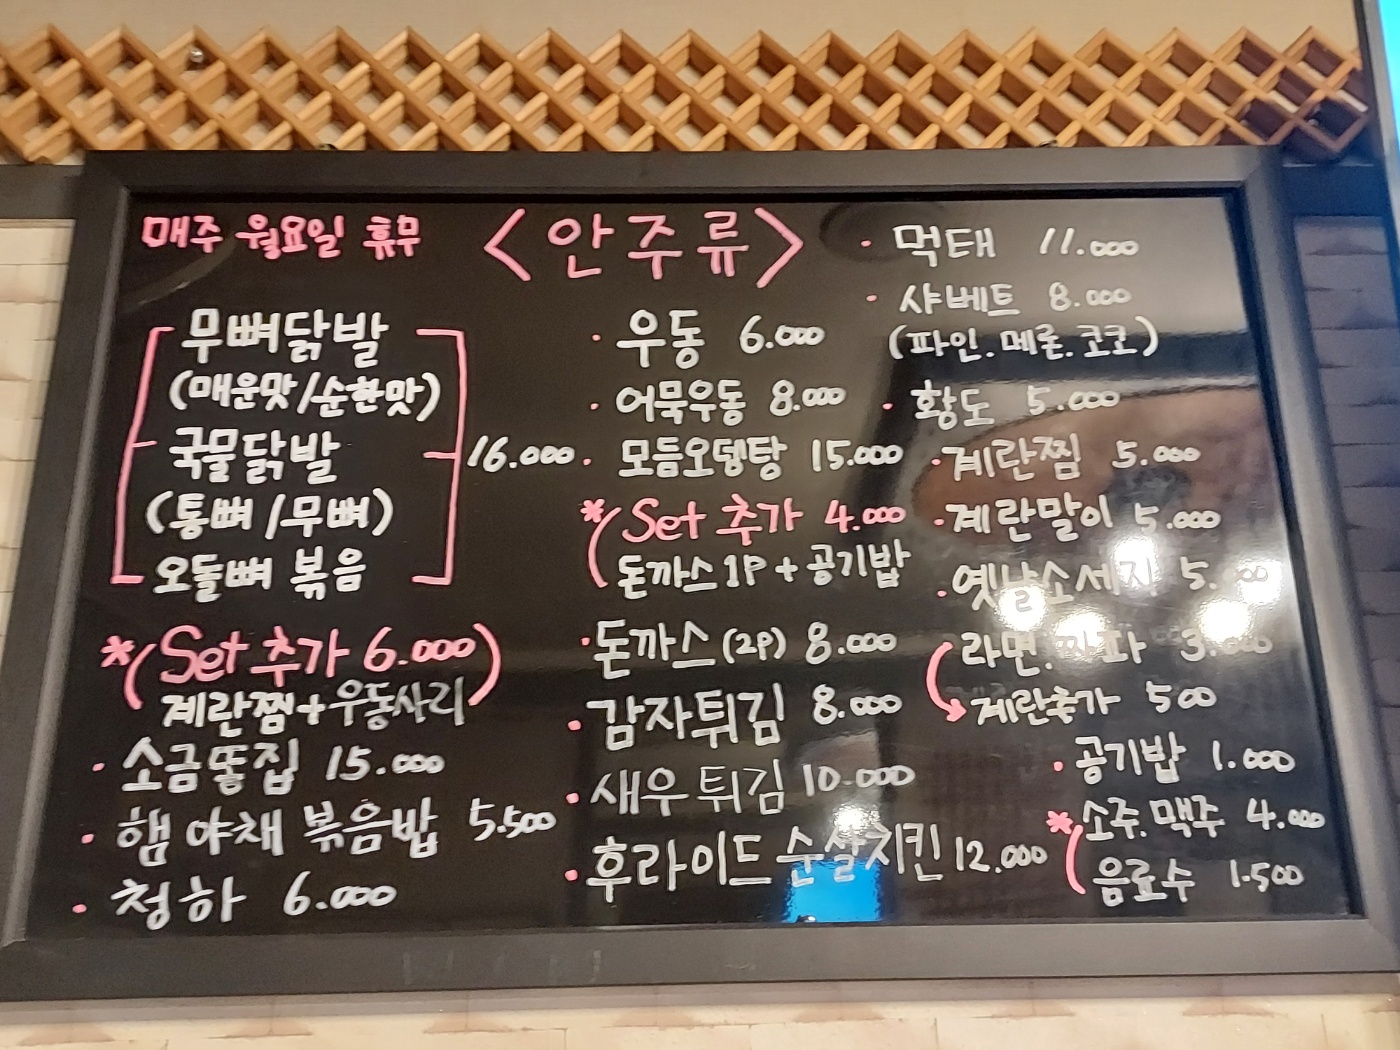 매주 월요일 휴무
<안주류>
무뼈닭발
(매운맛/순한맛)
국물닭발
16.000
(통뼈/무뼈)
오돌뼈 볶음
*(Set 추가 6.000)
계란찜+우동사리
· 소금똥집 15.000
· 햄 야채 볶음밥 5.500
· 청하 6.000
· 우동 6.000
· 어묵우동 8.000
· 모듬오뎅탕 15.000
*(Set 추가 4.000
돈까스 1P + 공기밥
· 돈까스 (2P) 8.000
· 감자튀김 8.000
· 새우튀김 10.000
· 후라이드 순살치킨 12.000
· 먹태 11.000
· 샤베트 8.000
(파인.메론.코코)
· 황도 5.000
· 계란찜 5.000
· 계란말이 5.000
· 옛날소세지 5.000
라면. 3.000
계란추가 500
· 공기밥 1.000
* 소주.맥주 4.000
음료수 1.500